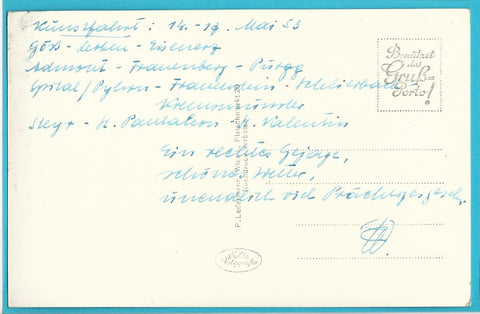 Kunstfahrt: 14.-17. Mai 53
Göß - Leoben - Eisenerz
Admont - Frauenberg - Pürgg
Spital/Pyhrn - Frauenstein - Schlierbach
Kremsmünster
Steyr - St. Pantaleon - St. Valentin
Ein rechtes Gejage,
schönes Wetter,
unendlich viel Prächtiges gesehn.
Benützet
das
Gruß-
Porto!
P. Ledermann, Wien I., Fleischmarkt 20
Nachdruck verboten
Echte
Fotografie